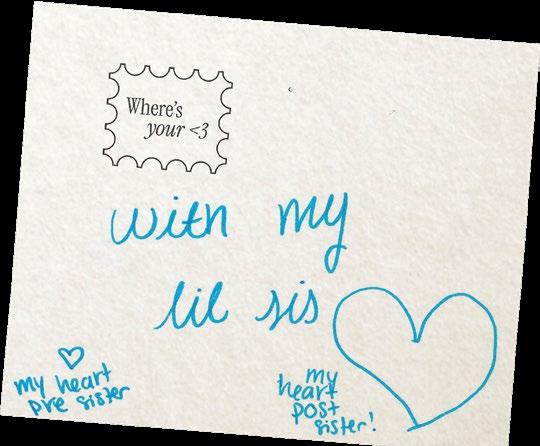 Where's
your <3
with my
lil sis
my heart
pre sister
my
heart
post
sister!